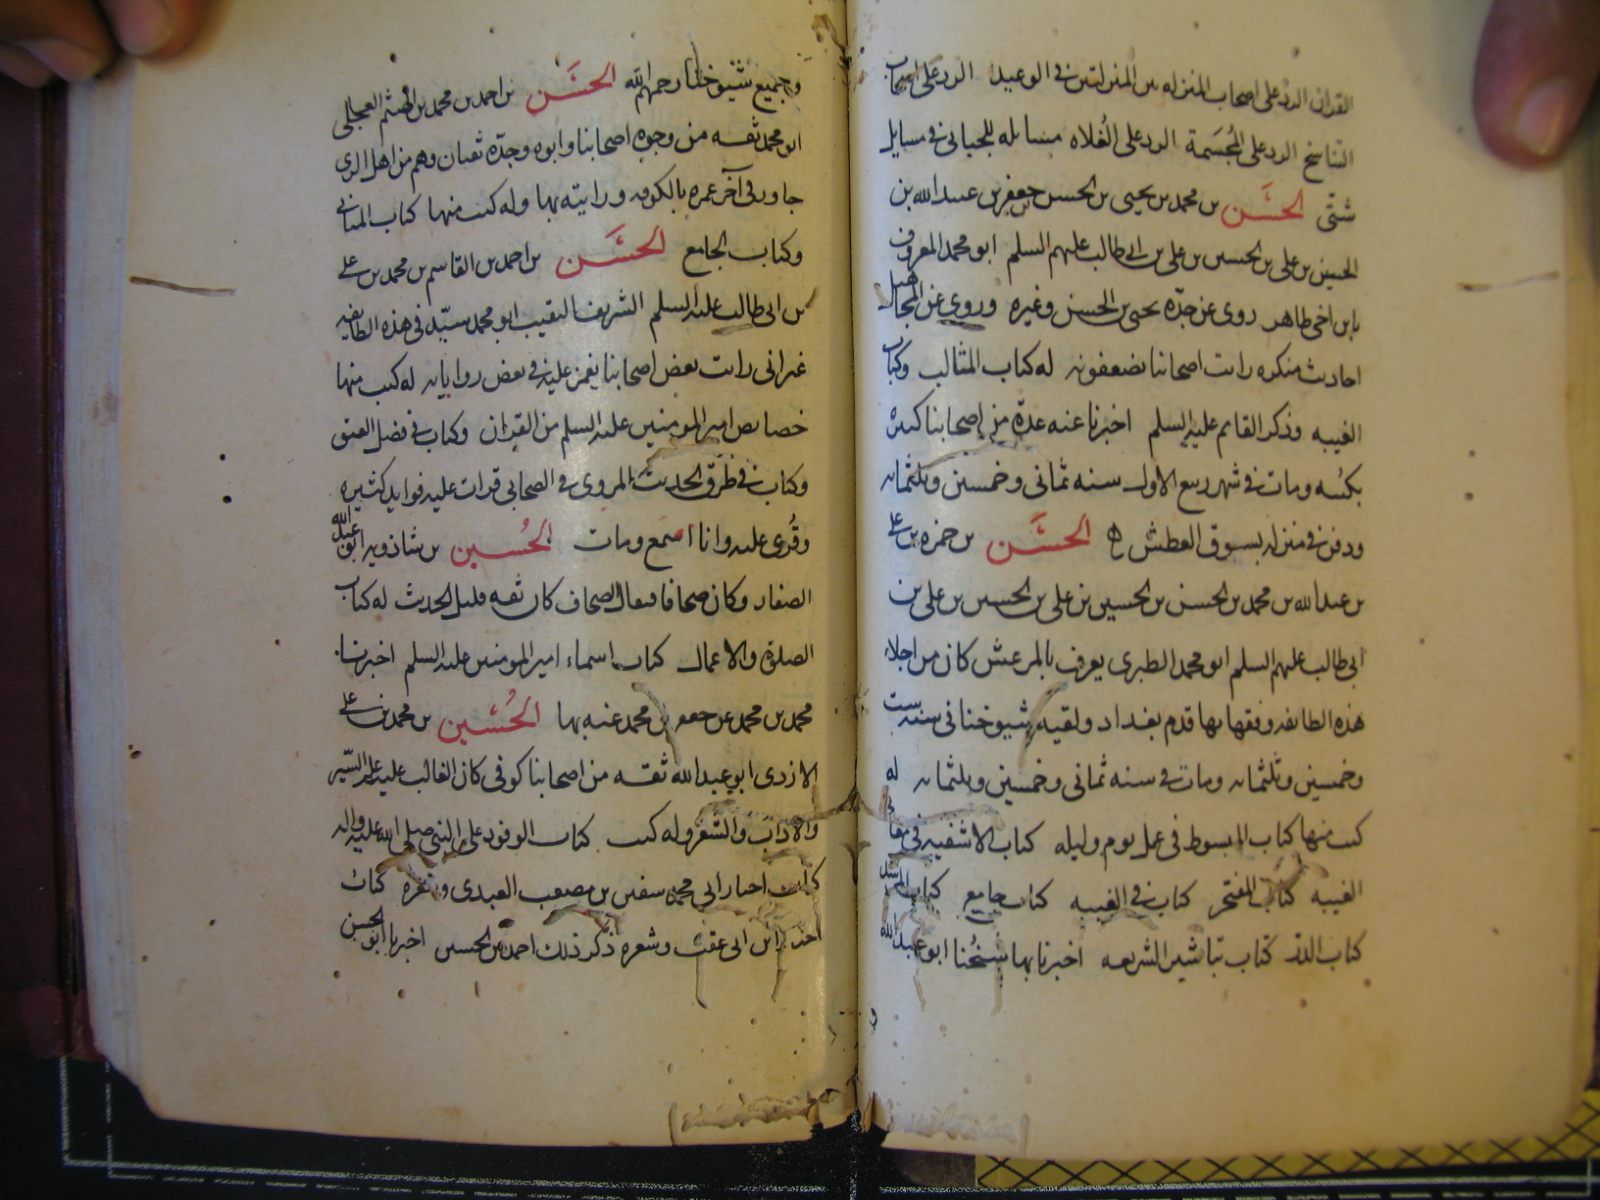 القران الرد على اصحاب المنزله بين المنزلتين فى الوعيد الرد على اصحاب
التناسخ الرد على المُجسَمة الرد على الغُلاه مسائله للجبائى فى مسايل
شتّى الحسَن بن محمد بن يحيى بن الحسن بن جعفر بن عبيد الله بن
الحسين بن على بن الحسين بن على بن ابى طالب عليهم السلم ابو محمد المعروف
بابن اخى طاهر روى عن جدّه يحيى بن الحسن وغيره وروى عن المجاهيل
احاديث منكره رايت اصحابنا يضعفونه له كتاب المثالب وكتاب
الغيبه وذكر القايم عليه السلم اخبرنا عنه عدّة من اصحابنا كثيره
بكتبه ومات فى شهر ربيع الاول سنه ثمانى وخمسين وثلثمائه
ودفن فى منزله بسوق العطش الحسَن بن حمزه بن على
بن عبد الله بن محمد بن الحسن بن الحسين بن على بن الحسين بن على بن
ابى طالب عليهم السلم ابو محمد الطبرى يعرف بالمرعش كان من اجلاء
هذه الطايفه وفقهائها قدم بغداد ولقيه شيوخنا فى سنه ست
وخمسين وثلثمائه ومات فى سنه ثمانى وخمسين وثلثمائه له
كتب منها كتاب المبسوط فى عمل يوم وليله كتاب الاشفيه فى معانى
الغيبه كتاب المفتخر كتاب فى الغيبه كتاب جامع كتاب المرشد
كتاب الدرّ كتاب تباشير الشريعه اخبرنا بها شيخُنا ابو عبد الله
وجميع شيوخنا رحمهم الله الحسَن بن احمد بن محمد بن الهيثم العجلى
ابو محمد ثقه من وجوه اصحابنا وابوه وجدّه ثقتان وهم من اهل الرى
جاور فى آخر عمره بالكوفه ورايته بها وله كتب منها كتاب المثانى
وكتاب الجامع الحسَن بن احمد بن القاسم بن محمد بن على
بن ابى طالب عليه السلم الشريف النقيب ابو محمد سيّد فى هذه الطايفه
غير انى رايت بعض اصحابنا يغمز عليه فى بعض رواياته له كتب منها
خصايص امير المومنين عليه السلم من القران وكتاب فى فضل العتق
وكتاب فى طرق الحديث المروى فى الصحابى قرات عليه فوايد كثيره
وقُرى عليه وانا اسمع ومات الحُسين بن شاذويه ابو عبد الله
الصفار وكان صحافا فيقال الصحاف كان ثقه قليل الحديث له كتاب
الصلوة والاعمال كتاب اسماء امير المومنين عليه السلم اخبرنا
محمد بن محمد عن جعفر بن محمد عنه بها الحُسَين بن محمد بن على
الازدى ابو عبد الله ثقه من اصحابنا كوفى كان الغالب عليه علم السّير
والاداب والشعر وله كتب كتاب الوفود على النبى صلى الله عليه واله
كتاب اخبار ابى محمد سفين بن مصعب العبدى وشعره كتاب
اخبار ابن ابى عقب وشعره ذكر ذلك احمد بن الحسين اخبرنا ابو الحسن